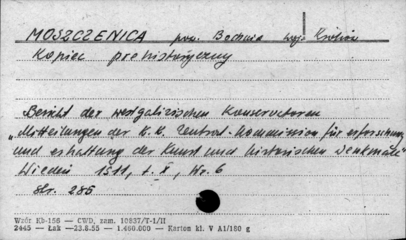 MOSZCZENICA pow. Bochnia woj. Kraków
Kopiec prehistoryczny
Bericht der westgalizischen Konservatoren
"Mitteilungen der K.K. Zentral-Kommission für erforschung
und erhaltung der Kunst und historischen Denkmale"
Wiedeń 1911, t. X, Nr. 6
str. 286
Wzór Kb-156 — CWD, zam. 10837/T-1/II
2445 — Łak — 23.8.55 — 1.460.000 — Karton kl. V A1/180 g